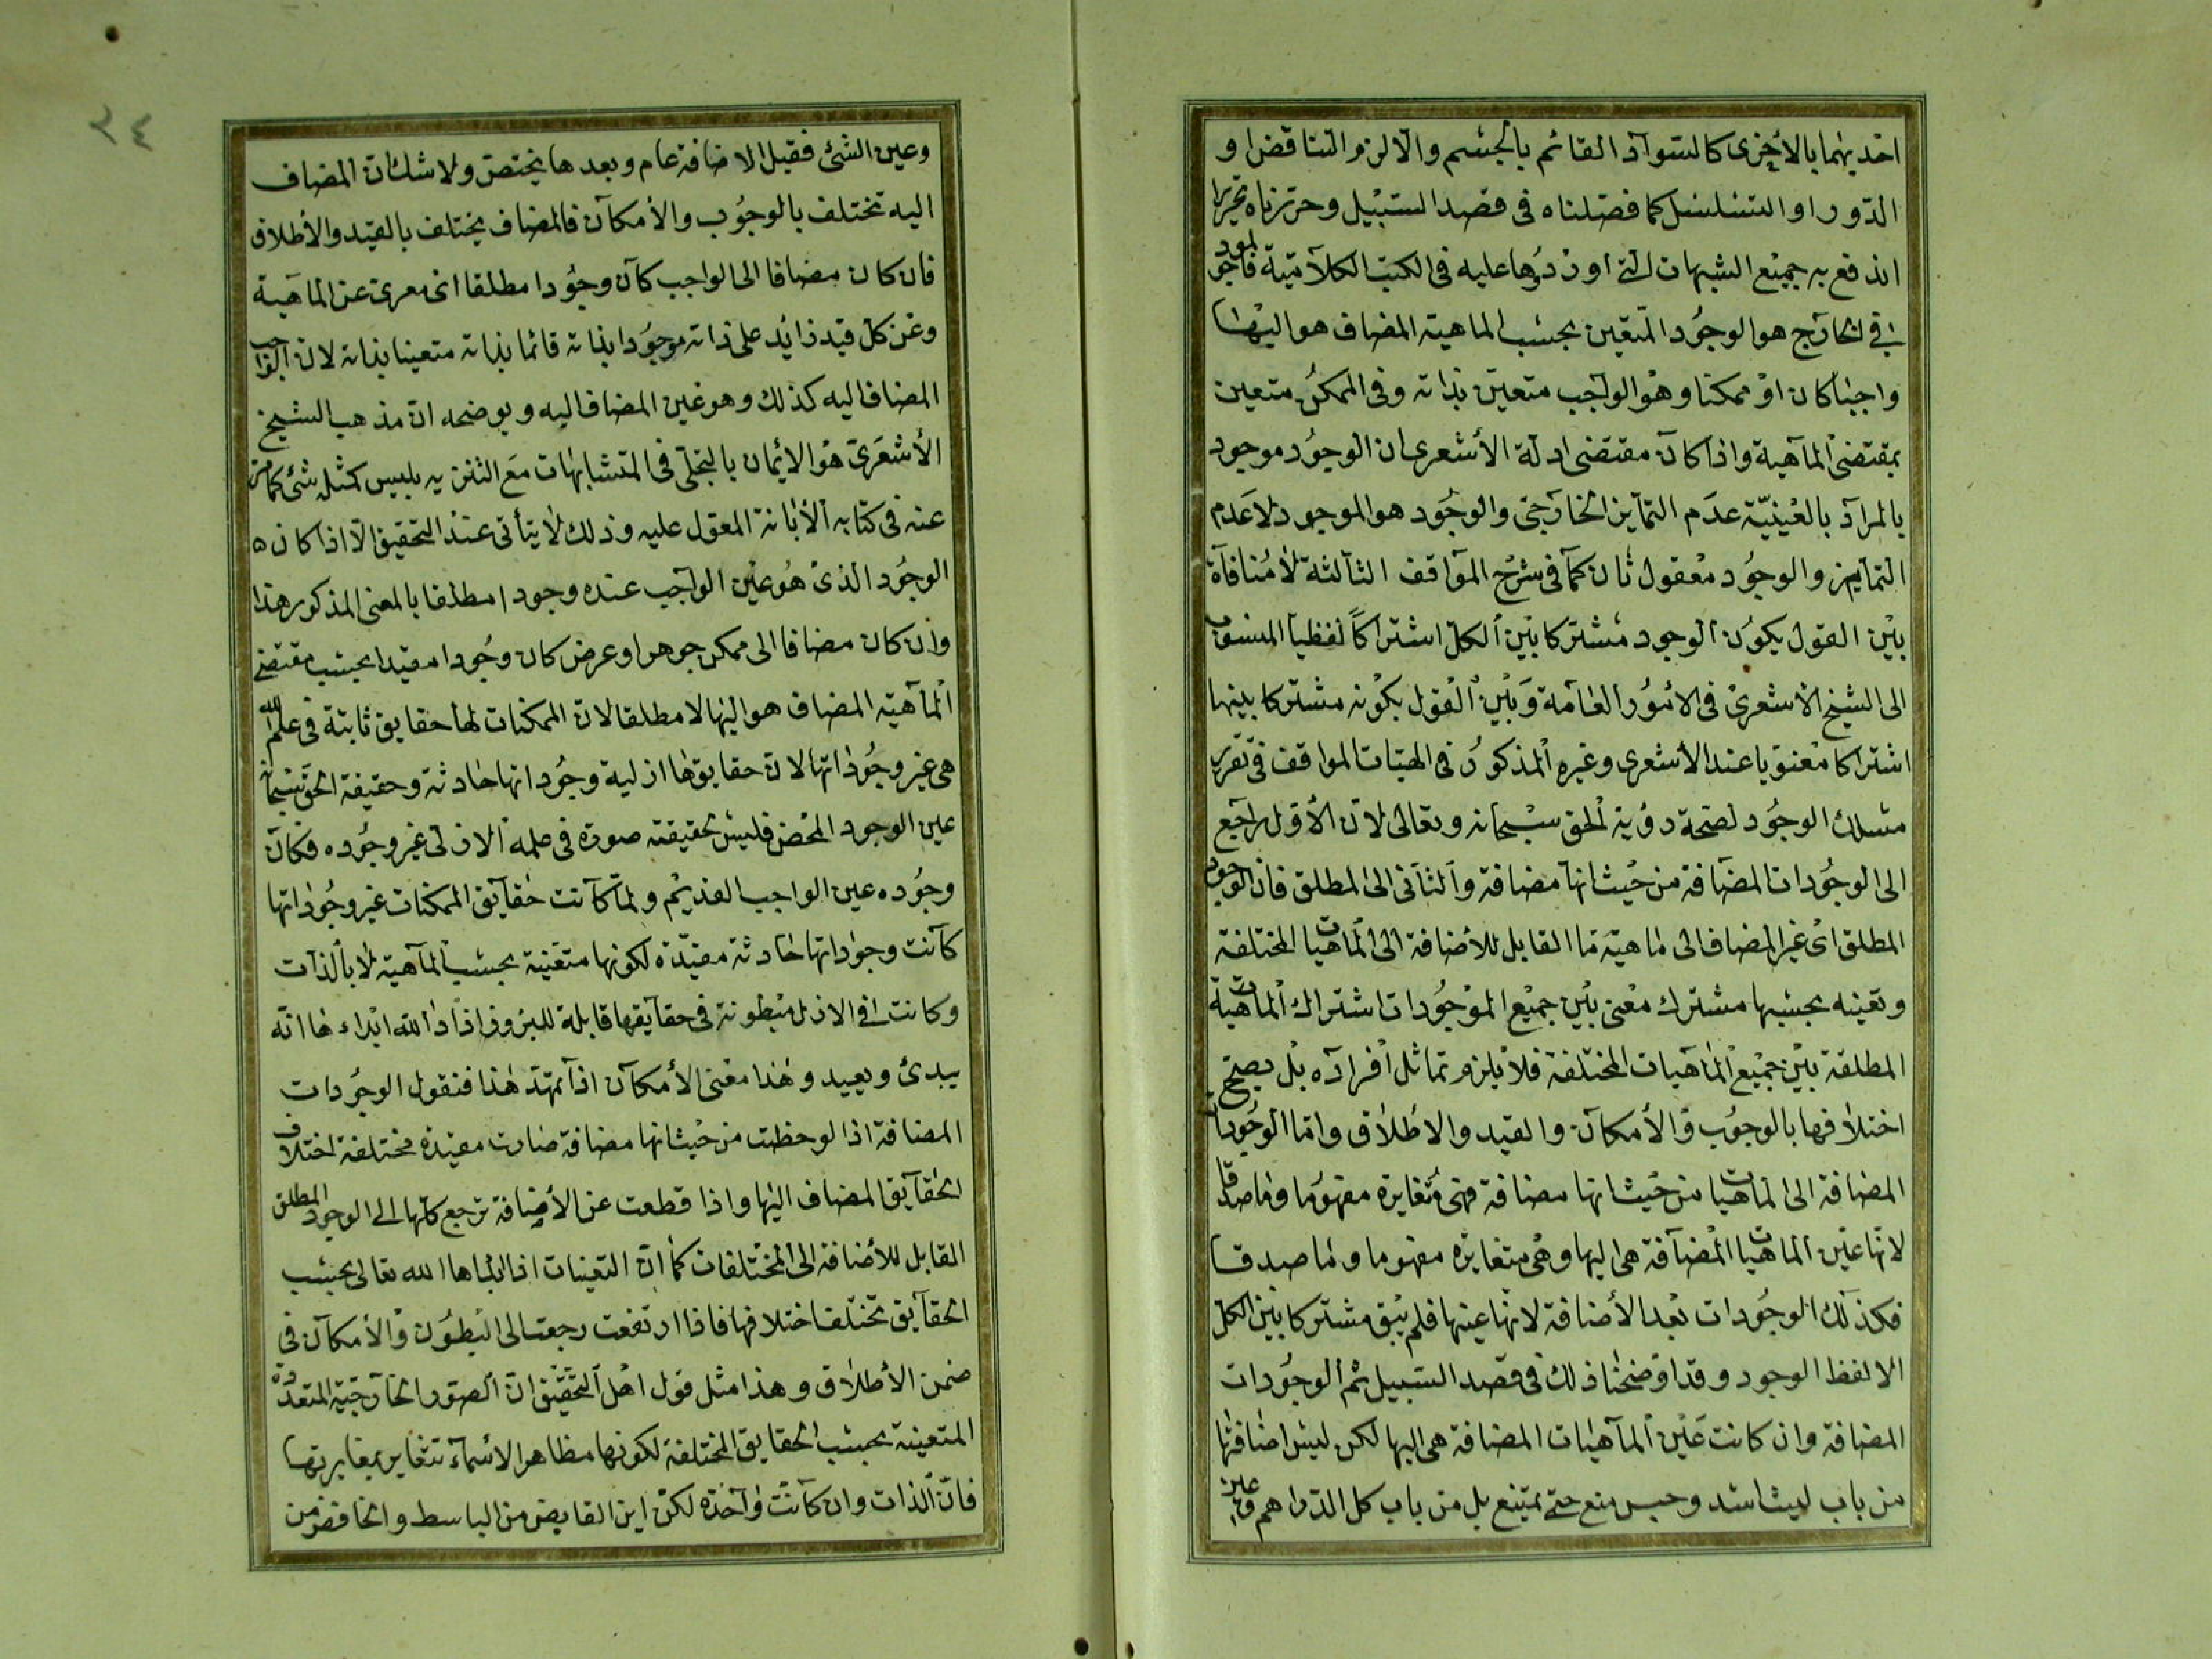 احديهما بالأخرى كالسواد القائم بالجسم والا لزم التناقض او
الدور او التسلسل كما فصلناه فى قصد السبيل وحررناه تحريرا
اندفع به جميع الشبهات التى اوردوها عليه فى الكتب الكلامية فالموجود
فى الخارج هو الوجود المتعين بحسب الماهية المضاف هو اليها
واجبا كان او ممكنا وهو الواجب متعين بذاته وفى الممكن متعين
بمقتضى الماهية واذا كان مقتضى ادلة الأشعرى ان الوجود موجود
بالمراد بالعينية عدم التمايز الخارجى والوجود هو الموجود لا عدم
التمايز والوجود معقول ثان كما فى شرح المواقف الثالثة لا منافاة
بين القول بكون الوجود مشتركا بين الكل اشتراكا لفظيا المنسوب
الى الشيخ الأشعرى فى الأمور العامة وبين القول بكونه مشتركا بينها
اشتراكا معنويا عند الأشعرى وغيره المذكور فى الهيات المواقف فى تقرير
مسلك الوجود لصحة رؤية الحق سبحانه وتعالى لان الأول راجع
الى الوجودات المضافة من حيث انها مضافة والثانى الى المطلق فان الوجود
المطلق اى غير المضاف الى ماهية ما القابل للأضافة الى الماهيات المختلفة
وتعينه بحسبها مشترك معنى بين جميع الموجودات اشتراك الماهية
المطلقة بين جميع الماهيات المختلفة فلا يلزم تماثل افراده بل يصح
اختلافها بالوجوب والأمكان والقيد والاطلاق واما الوجودات
المضافة الى الماهيات من حيث انها مضافة فهى متغايرة مفهوما وماصدقا
لانها عين الماهيات المضافة هى اليها وهى متغايره مفهوما وماصدقا
فكذلك الوجودات بعد الأضافة لانها عينها فلم يبق مشتركا بين الكل
الا لفظ الوجود وقد اوضحنا ذلك فى قصد السبيل ثم الوجودات
المضافة وان كانت عين الماهيات المضافة هى اليها لكن ليس اضافتها
من باب ليث اسد وحبس منع حتى يمتنع بل من باب كل الدراهم وعين
٢٤
وعين الشئ فقبل الاضافة عام وبعدها يختص ولا شك ان المضاف
اليه تختلف بالوجوب والأمكان فالمضاف يختلف بالقيد والأطلاق
فان كان مضافا الى الواجب كان وجودا مطلقا اى معرى عن الماهية
وعن كل قيد زائد على ذاته موجودا بذاته قائما بذاته متعينا بذاته لان الواجب
المضاف اليه كذلك وهو عين المضاف اليه ويوضحه ان مذهب الشيخ
الأشعرى هو الايمان بالتجلى فى المتشابهات مع التنزيه بليس كمثله شئ كما مر
عنه فى كتابه الأبانة المعول عليه وذلك لا يتأتى عند التحقيق الا اذا كان
الوجود الذى هو عين الواجب عنده وجودا مطلقا بالمعنى المذكور هذا
وان كان مضافا الى ممكن جوهر او عرض كان وجودا مقيدا بحسب مقتضى
الماهية المضاف هو اليها لا مطلقا لان الممكنات لها حقايق ثابتة فى علم الله
هى غير وجوداتها لان حقايقها ازلية وجوداتها حادثة وحقيقة الحق سبحانه
عين الوجود المحض فليس لحقيقته صورة فى علمه الازلى غير وجوده فكان
وجوده عين الواجب القديم ولما كانت حقايق الممكنات غير وجوداتها
كانت وجوداتها حادثة مقيدة لكونها متعينة بحسب الماهية لا بالذات
وكانت فى الازل مبطونة فى حقايقها قابلة للبروز اذا اراد الله ابداءها انه
يبدئ ويعيد وهذا معنى الأمكان اذا تمهد هذا فنقول الوجودات
المضافة اذا لوحظت من حيث انها مضافة صارت مقيدة مختلفة اختلاف
الحقايق المضاف اليها واذا قطعت عن الأضافة ترجع كلها الى الوجود المطلق
القابل للأضافة الى المختلفات كما ان التعينات اذا ابداها الله تعالى بحسب
الحقايق تختلف اختلافها فاذا ارتفعت رجعت الى البطون والأمكان فى
ضمن الأطلاق وهذا مثل قول اهل التحقيق ان الصور الخارجية المتعددة
المتعينة بحسب الحقايق المختلفة لكونها مظاهر الاسماء تتغاير بمغايرتها
فان الذات وان كانت واحدة لكن اين القابض من الباسط والخافض من